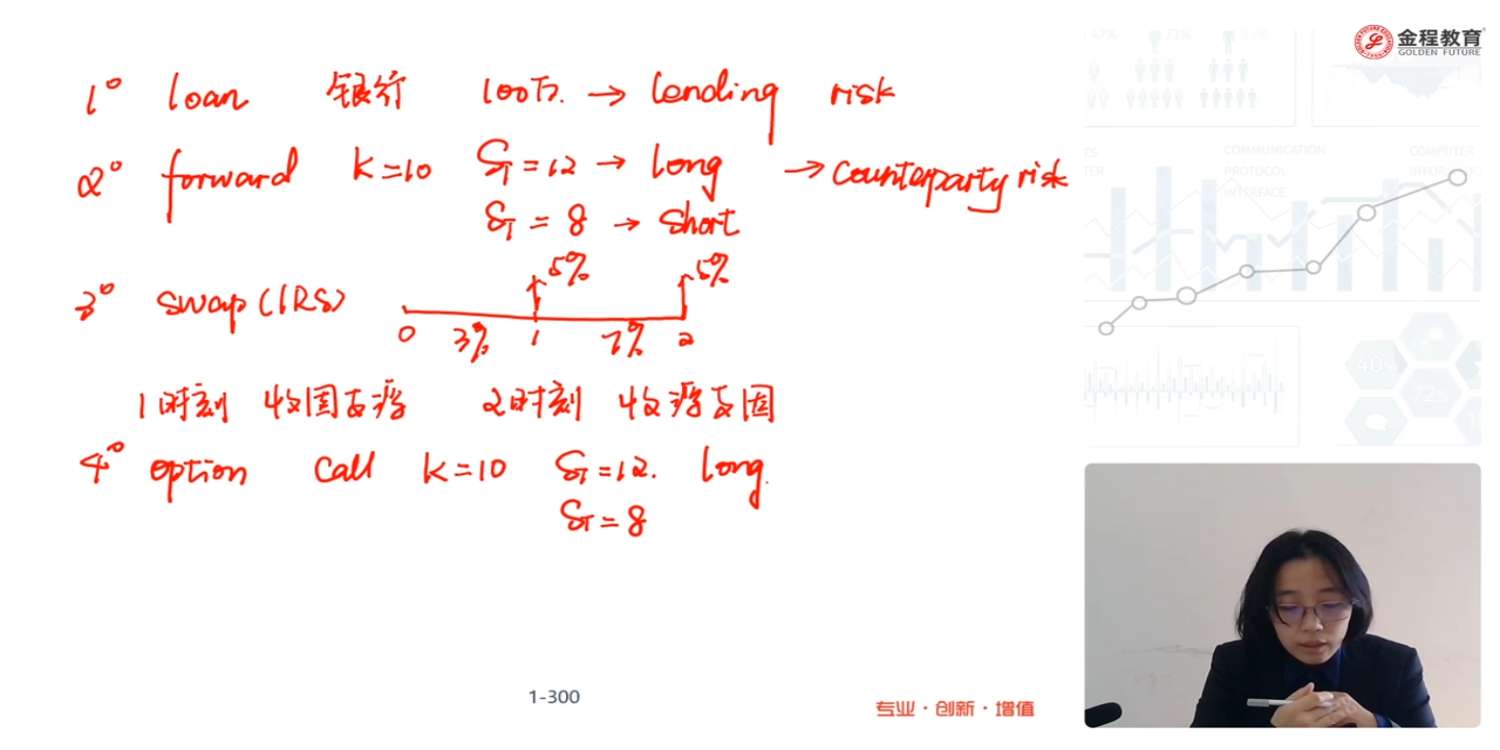 金程教育
GOLDEN FUTURE
1° loan 银行 100万. → Lending risk
2° forward K=10 S_T=12 → long → counterparty risk
S_T=8 → short
3° swap (IRS) 5% 5%
0 3% 1 7% 2
1时刻 收固支浮 2时刻 收浮支固
4° option call K=10 S_T=12. long.
S_T=8
COMMUNICATION
PROTOCOL
INTERFACE
COMPUTER
40%
72%
1-300
专业·创新·增值